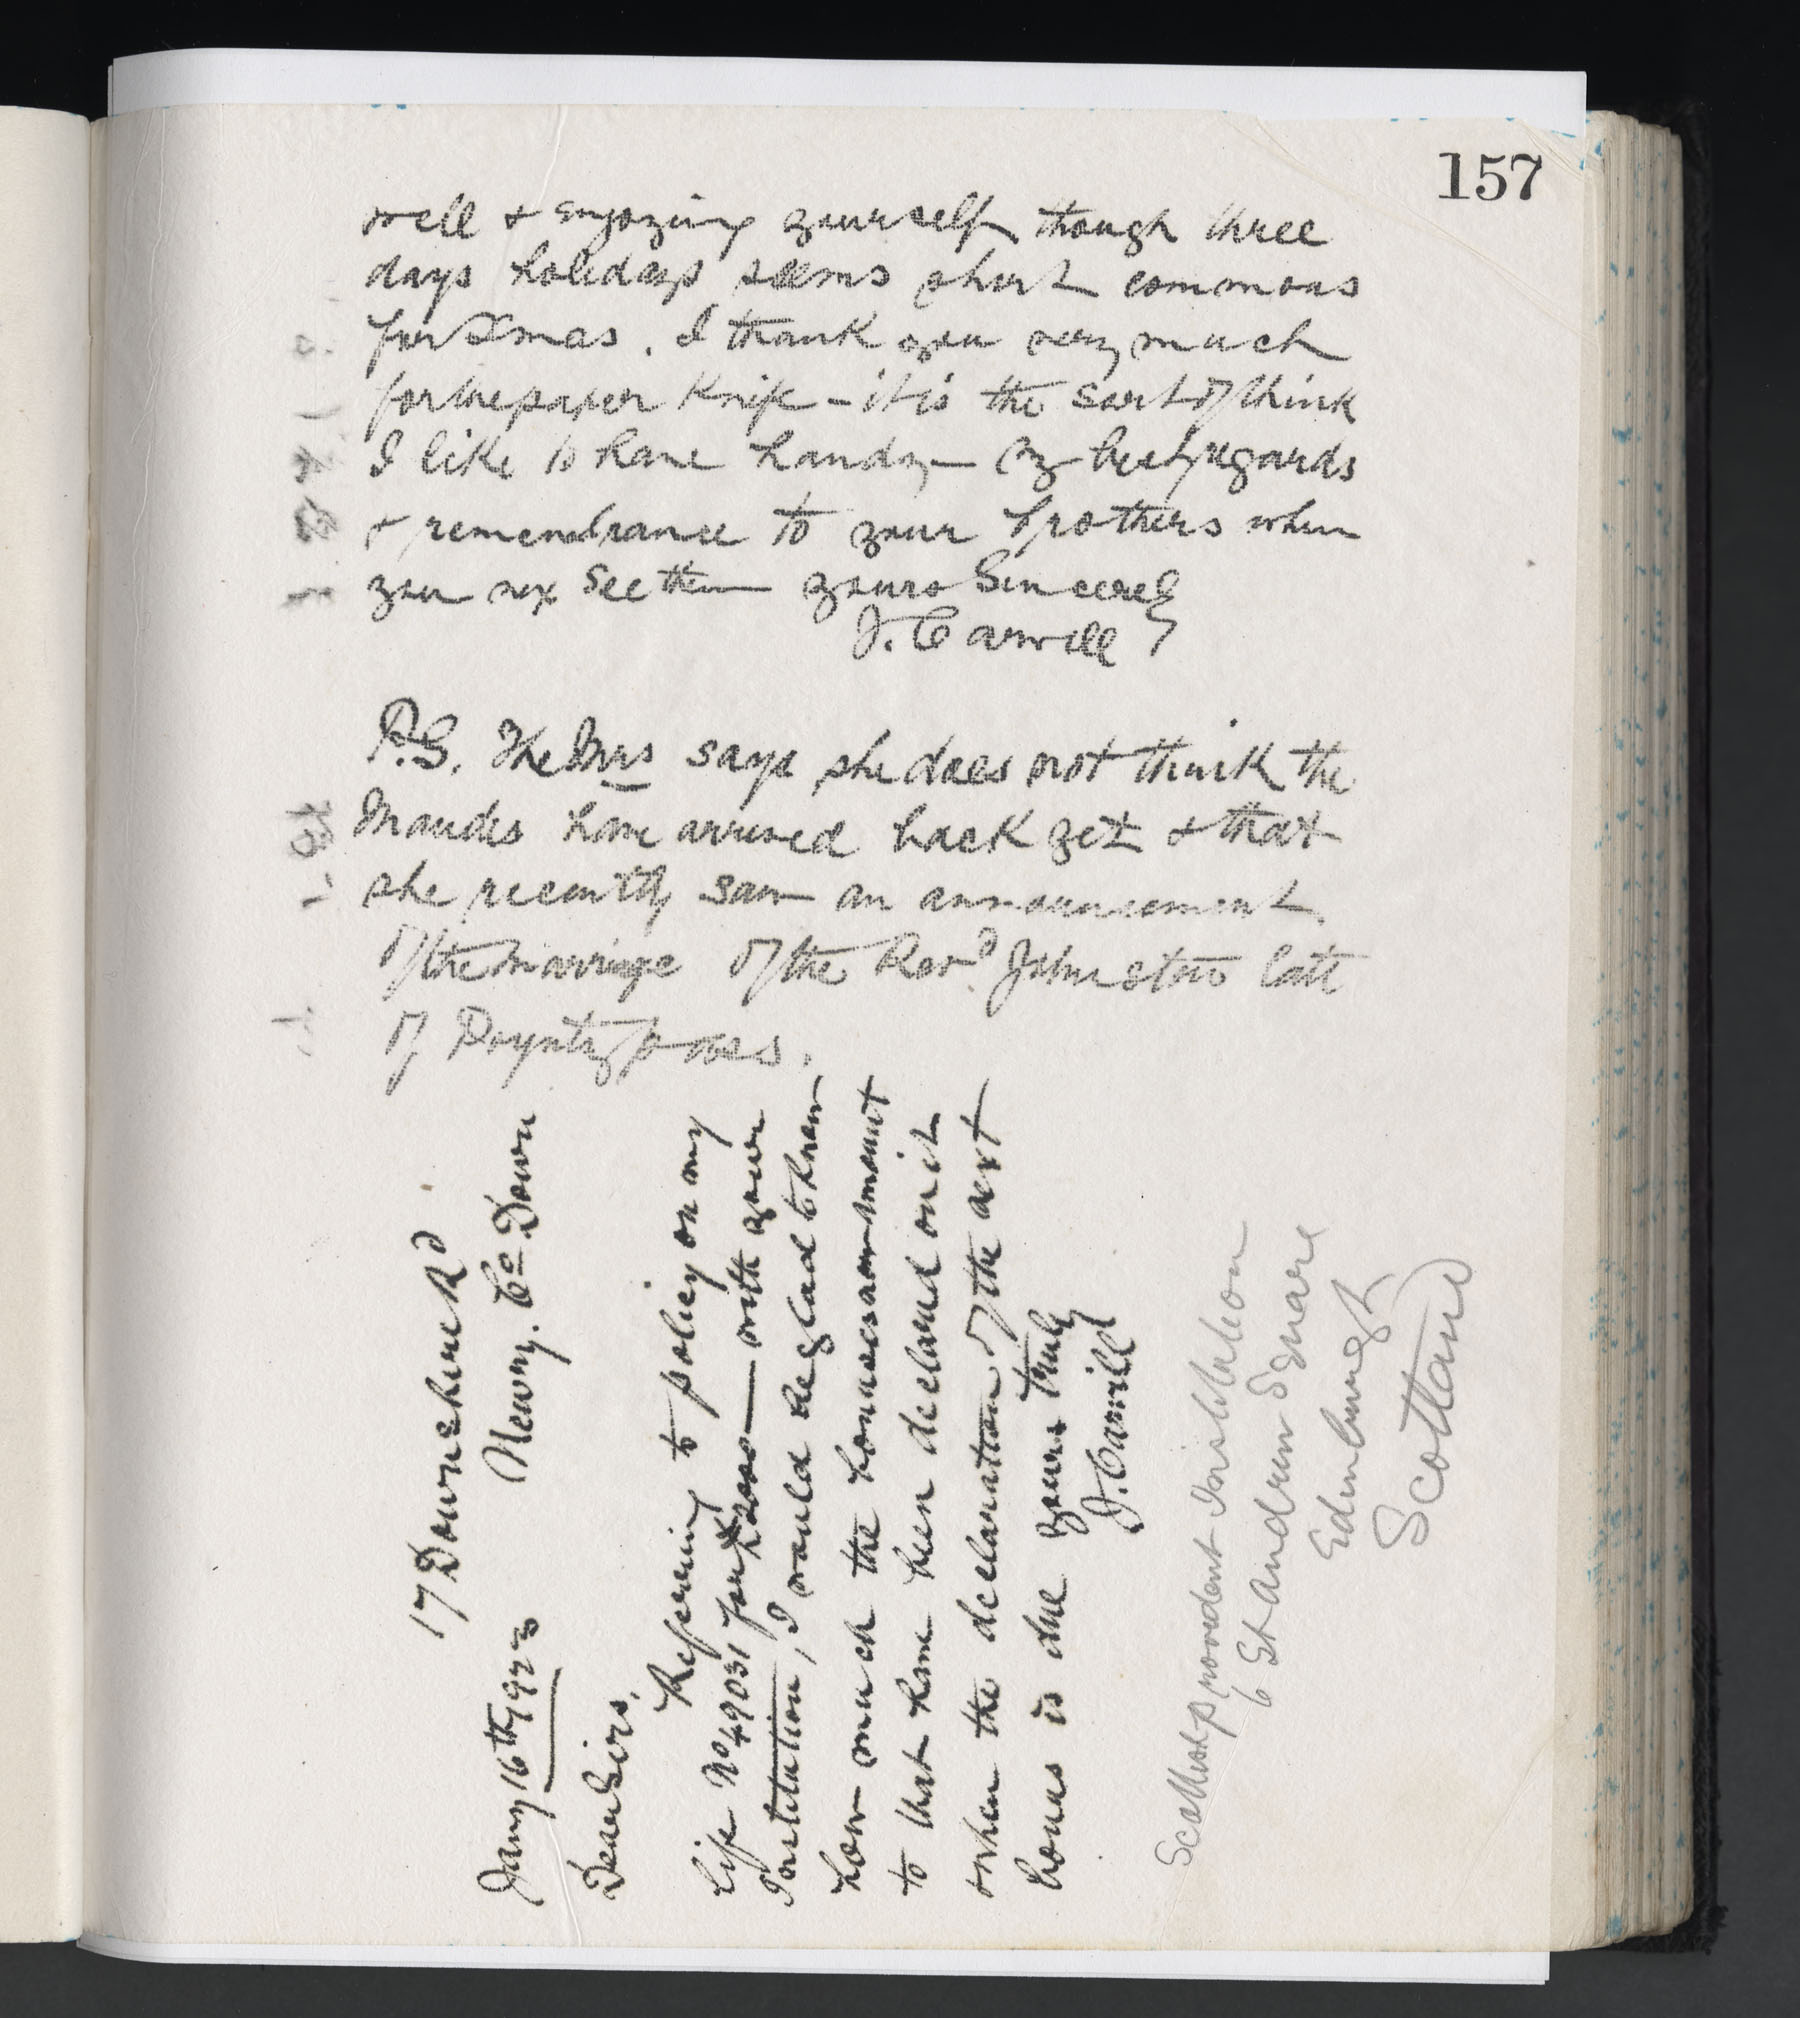 157
well & enjoying yourself though three
days holidays seems short commons
for Xmas. I thank you very much
for the paper Knife - it is the sort of think
I like to have handy - My best regards
& remembrance to your brothers when
you nex see them yours Sincerely
J. Carvill
P.S. The Mrs says she does not think the
Maudes have arrived back yet & that
she recently saw an announcement
of the marriage of the Revd Johnston late
of Poyntzpass.
17 Downshire Rd
Newry. Co Down
Jany 16th 1923
Dear Sirs,
Referring to policy on my
Life No 49031 for £2000 — with your
Institution, I would be glad to know
how much the bonuses amount
to that have been declared on it
when the declaration of the next
bonus is due yours truly
J. Carvill
Scottish provident Institution
6 St Andrew Square
Edinburgh
Scotland